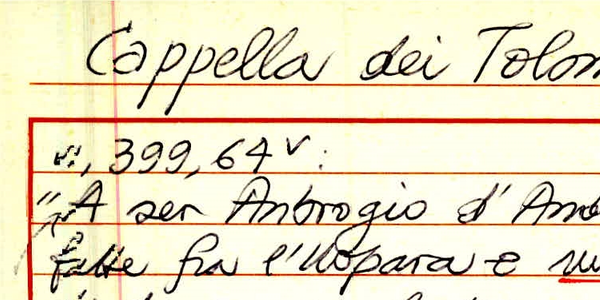 Cappella dei Tolom
399, 64v:
"A ser Ambrogio d'Amb
fatte fra l'Uopara e